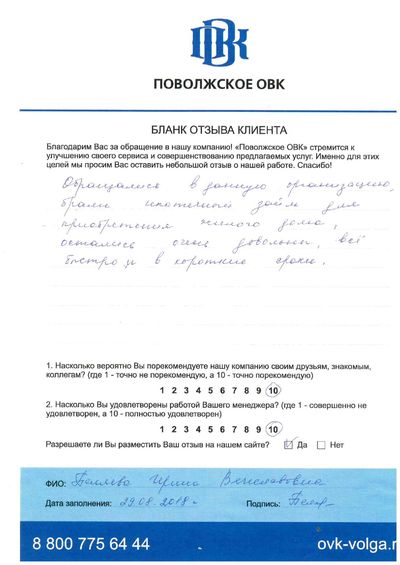 ПОВОЛЖСКОЕ ОВК
БЛАНК ОТЗЫВА КЛИЕНТА
Благодарим Вас за обращение в нашу компанию! «Поволжское ОВК» стремится к
улучшению своего сервиса и совершенствованию предлагаемых услуг. Именно для этих
целей мы просим Вас оставить небольшой отзыв о нашей работе. Спасибо!
Обращались в данную организацию,
брали ипотечный займ для
приобретения жилого дома,
остались очень довольны, всё
быстро и в короткие сроки.
1. Насколько вероятно Вы порекомендуете нашу компанию своим друзьям, знакомым,
коллегам? (где 1 - точно не порекомендую, а 10 - точно порекомендую)
1 2 3 4 5 6 7 8 9 10
2. Насколько Вы удовлетворены работой Вашего менеджера? (где 1 - совершенно не
удовлетворен, а 10 - полностью удовлетворен)
1 2 3 4 5 6 7 8 9 10
Разрешаете ли Вы разместить Ваш отзыв на нашем сайте? Да Нет
ФИО: Беляева Ирина
Дата заполнения: 29.08.2018г Подпись:
8 800 775 64 44 ovk-volga.r